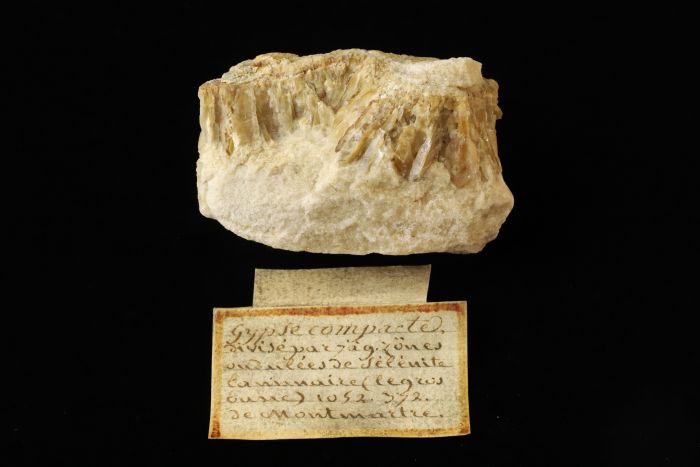 Gypse compacte,
divisé par zag, zônes
ondulées de Sélénite
laminaire (le gros
banc) 1052. 392.
de Montmartre.